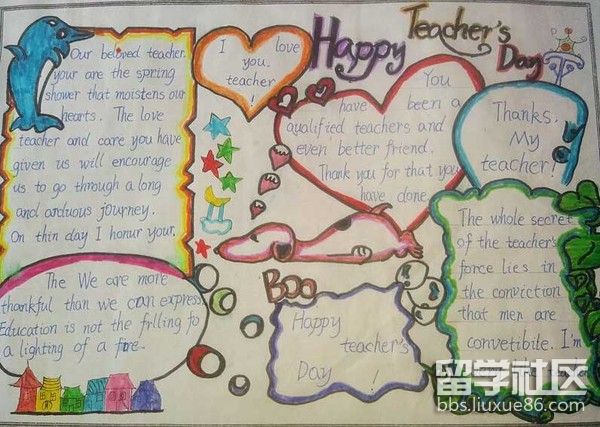 Happy Teacher's Day
Our beloved teacher,
your are the spring
shower that moistens our
hearts. The love
teacher and care you have
given us will encourage
us to go through a long
and arduous journey.
On thin day I honur your.
I love
you,
teacher
!
You
have been a
qualified teachers and
even better friend.
Thank you for that you
have done
Thanks,
My
teacher!
The We are more
thankful than we can express
Education is not the frlling fo
a lighting of a fire.
Boo
Happy
teacher's
Day !
The whole secret
of the teacher's
force lies in
the conviction
that men are
convetibile. I'm
留学社区
bbs.liuxue86.com